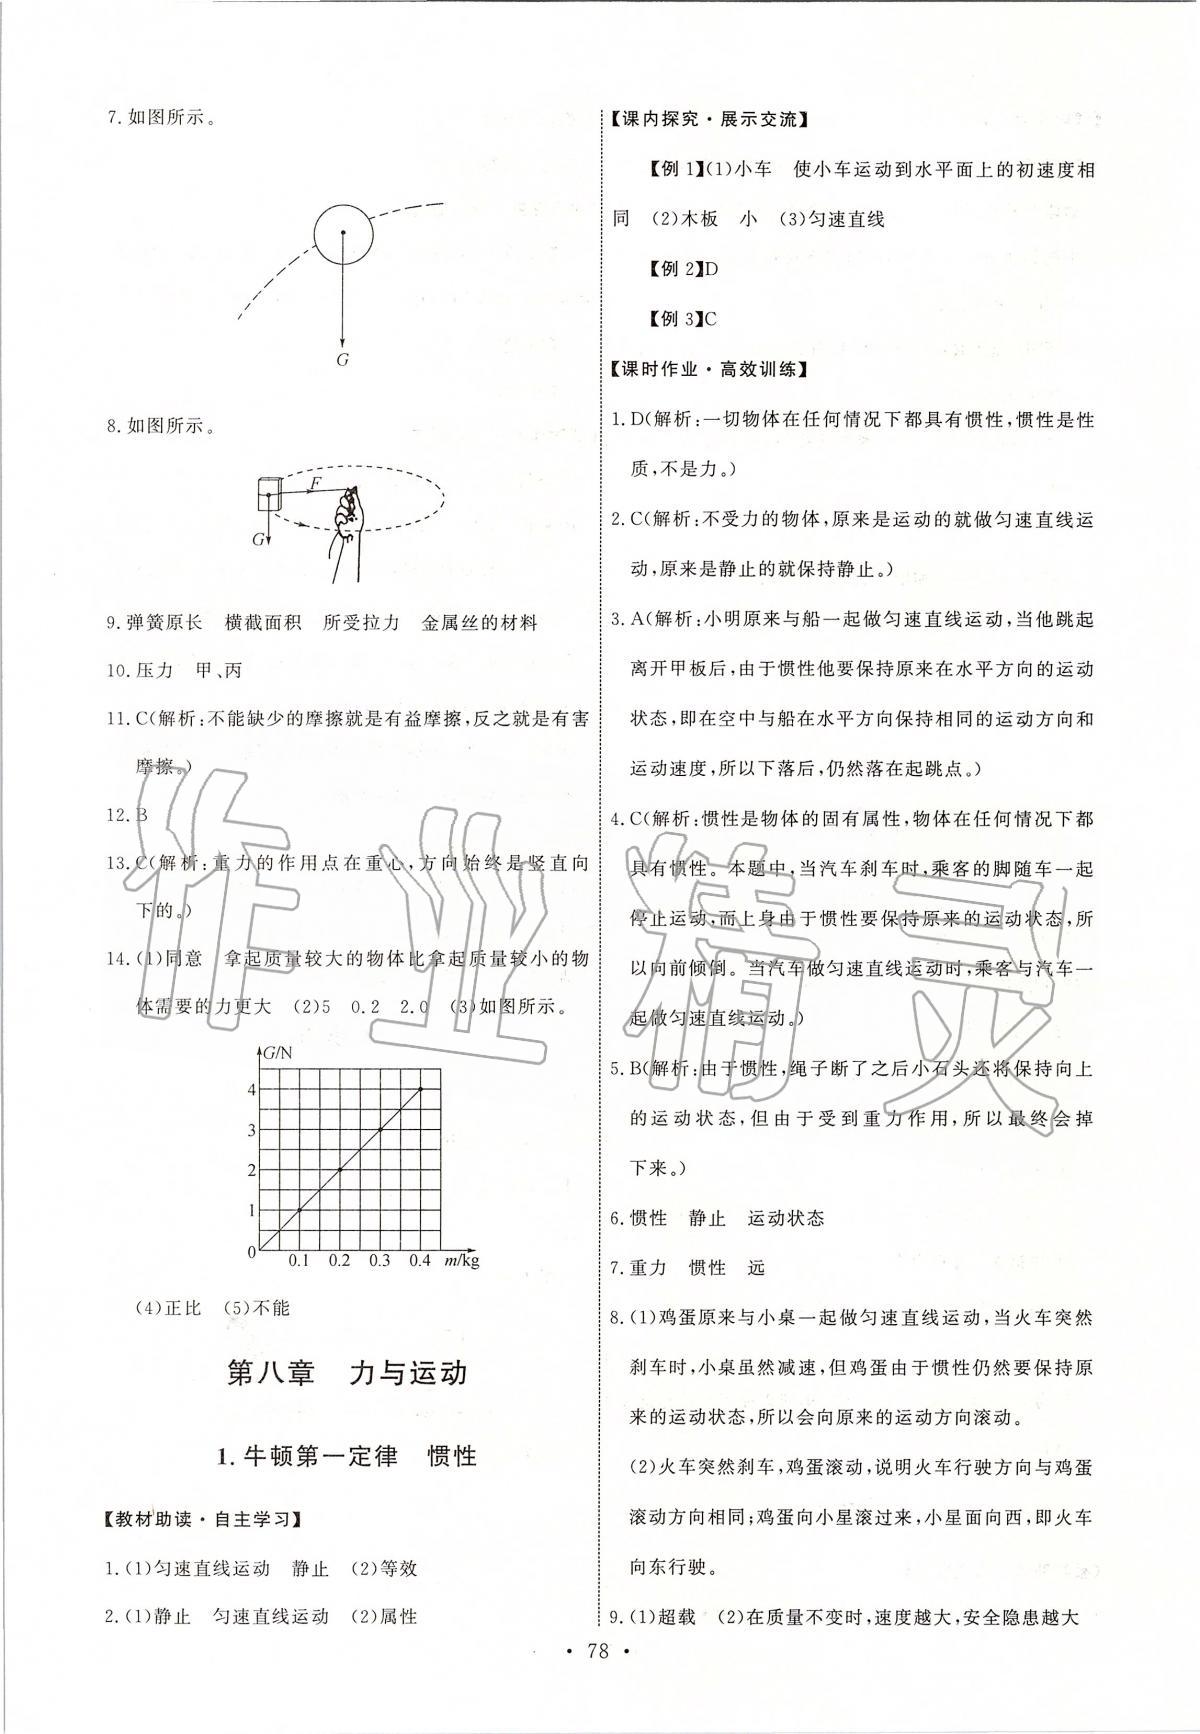 7.如图所示。
G
8.如图所示。
F
G
9.弹簧原长　横截面积　所受拉力　金属丝的材料
10.压力　甲、丙
11.C(解析:不能缺少的摩擦就是有益摩擦,反之就是有害
摩擦。)
12.B
13.C(解析:重力的作用点在重心,方向始终是竖直向
下的。)
14.(1)同意　拿起质量较大的物体比拿起质量较小的物
体需要的力更大　(2)5　0.2　2.0　(3)如图所示。
G/N
4
3
2
1
0
0.1　0.2　0.3　0.4　m/kg
(4)正比　(5)不能
第八章　力与运动
1.牛顿第一定律　惯性
【教材助读·自主学习】
1.(1)匀速直线运动　静止　(2)等效
2.(1)静止　匀速直线运动　(2)属性
【课内探究·展示交流】
【例1】(1)小车　使小车运动到水平面上的初速度相
同　(2)木板　小　(3)匀速直线
【例2】D
【例3】C
【课时作业·高效训练】
1.D(解析:一切物体在任何情况下都具有惯性,惯性是性
质,不是力。)
2.C(解析:不受力的物体,原来是运动的就做匀速直线运
动,原来是静止的就保持静止。)
3.A(解析:小明原来与船一起做匀速直线运动,当他跳起
离开甲板后,由于惯性他要保持原来在水平方向的运动
状态,即在空中与船在水平方向保持相同的运动方向和
运动速度,所以下落后,仍然落在起跳点。)
4.C(解析:惯性是物体的固有属性,物体在任何情况下都
具有惯性。本题中,当汽车刹车时,乘客的脚随车一起
停止运动,而上身由于惯性要保持原来的运动状态,所
以向前倾倒。当汽车做匀速直线运动时,乘客与汽车一
起做匀速直线运动。)
5.B(解析:由于惯性,绳子断了之后小石头还将保持向上
的运动状态,但由于受到重力作用,所以最终会掉
下来。)
6.惯性　静止　运动状态
7.重力　惯性　远
8.(1)鸡蛋原来与小桌一起做匀速直线运动,当火车突然
刹车时,小桌虽然减速,但鸡蛋由于惯性仍然要保持原
来的运动状态,所以会向原来的运动方向滚动。
(2)火车突然刹车,鸡蛋滚动,说明火车行驶方向与鸡蛋
滚动方向相同;鸡蛋向小星滚过来,小星面向西,即火车
向东行驶。
9.(1)超载　(2)在质量不变时,速度越大,安全隐患越大
· 78 ·
作业精灵